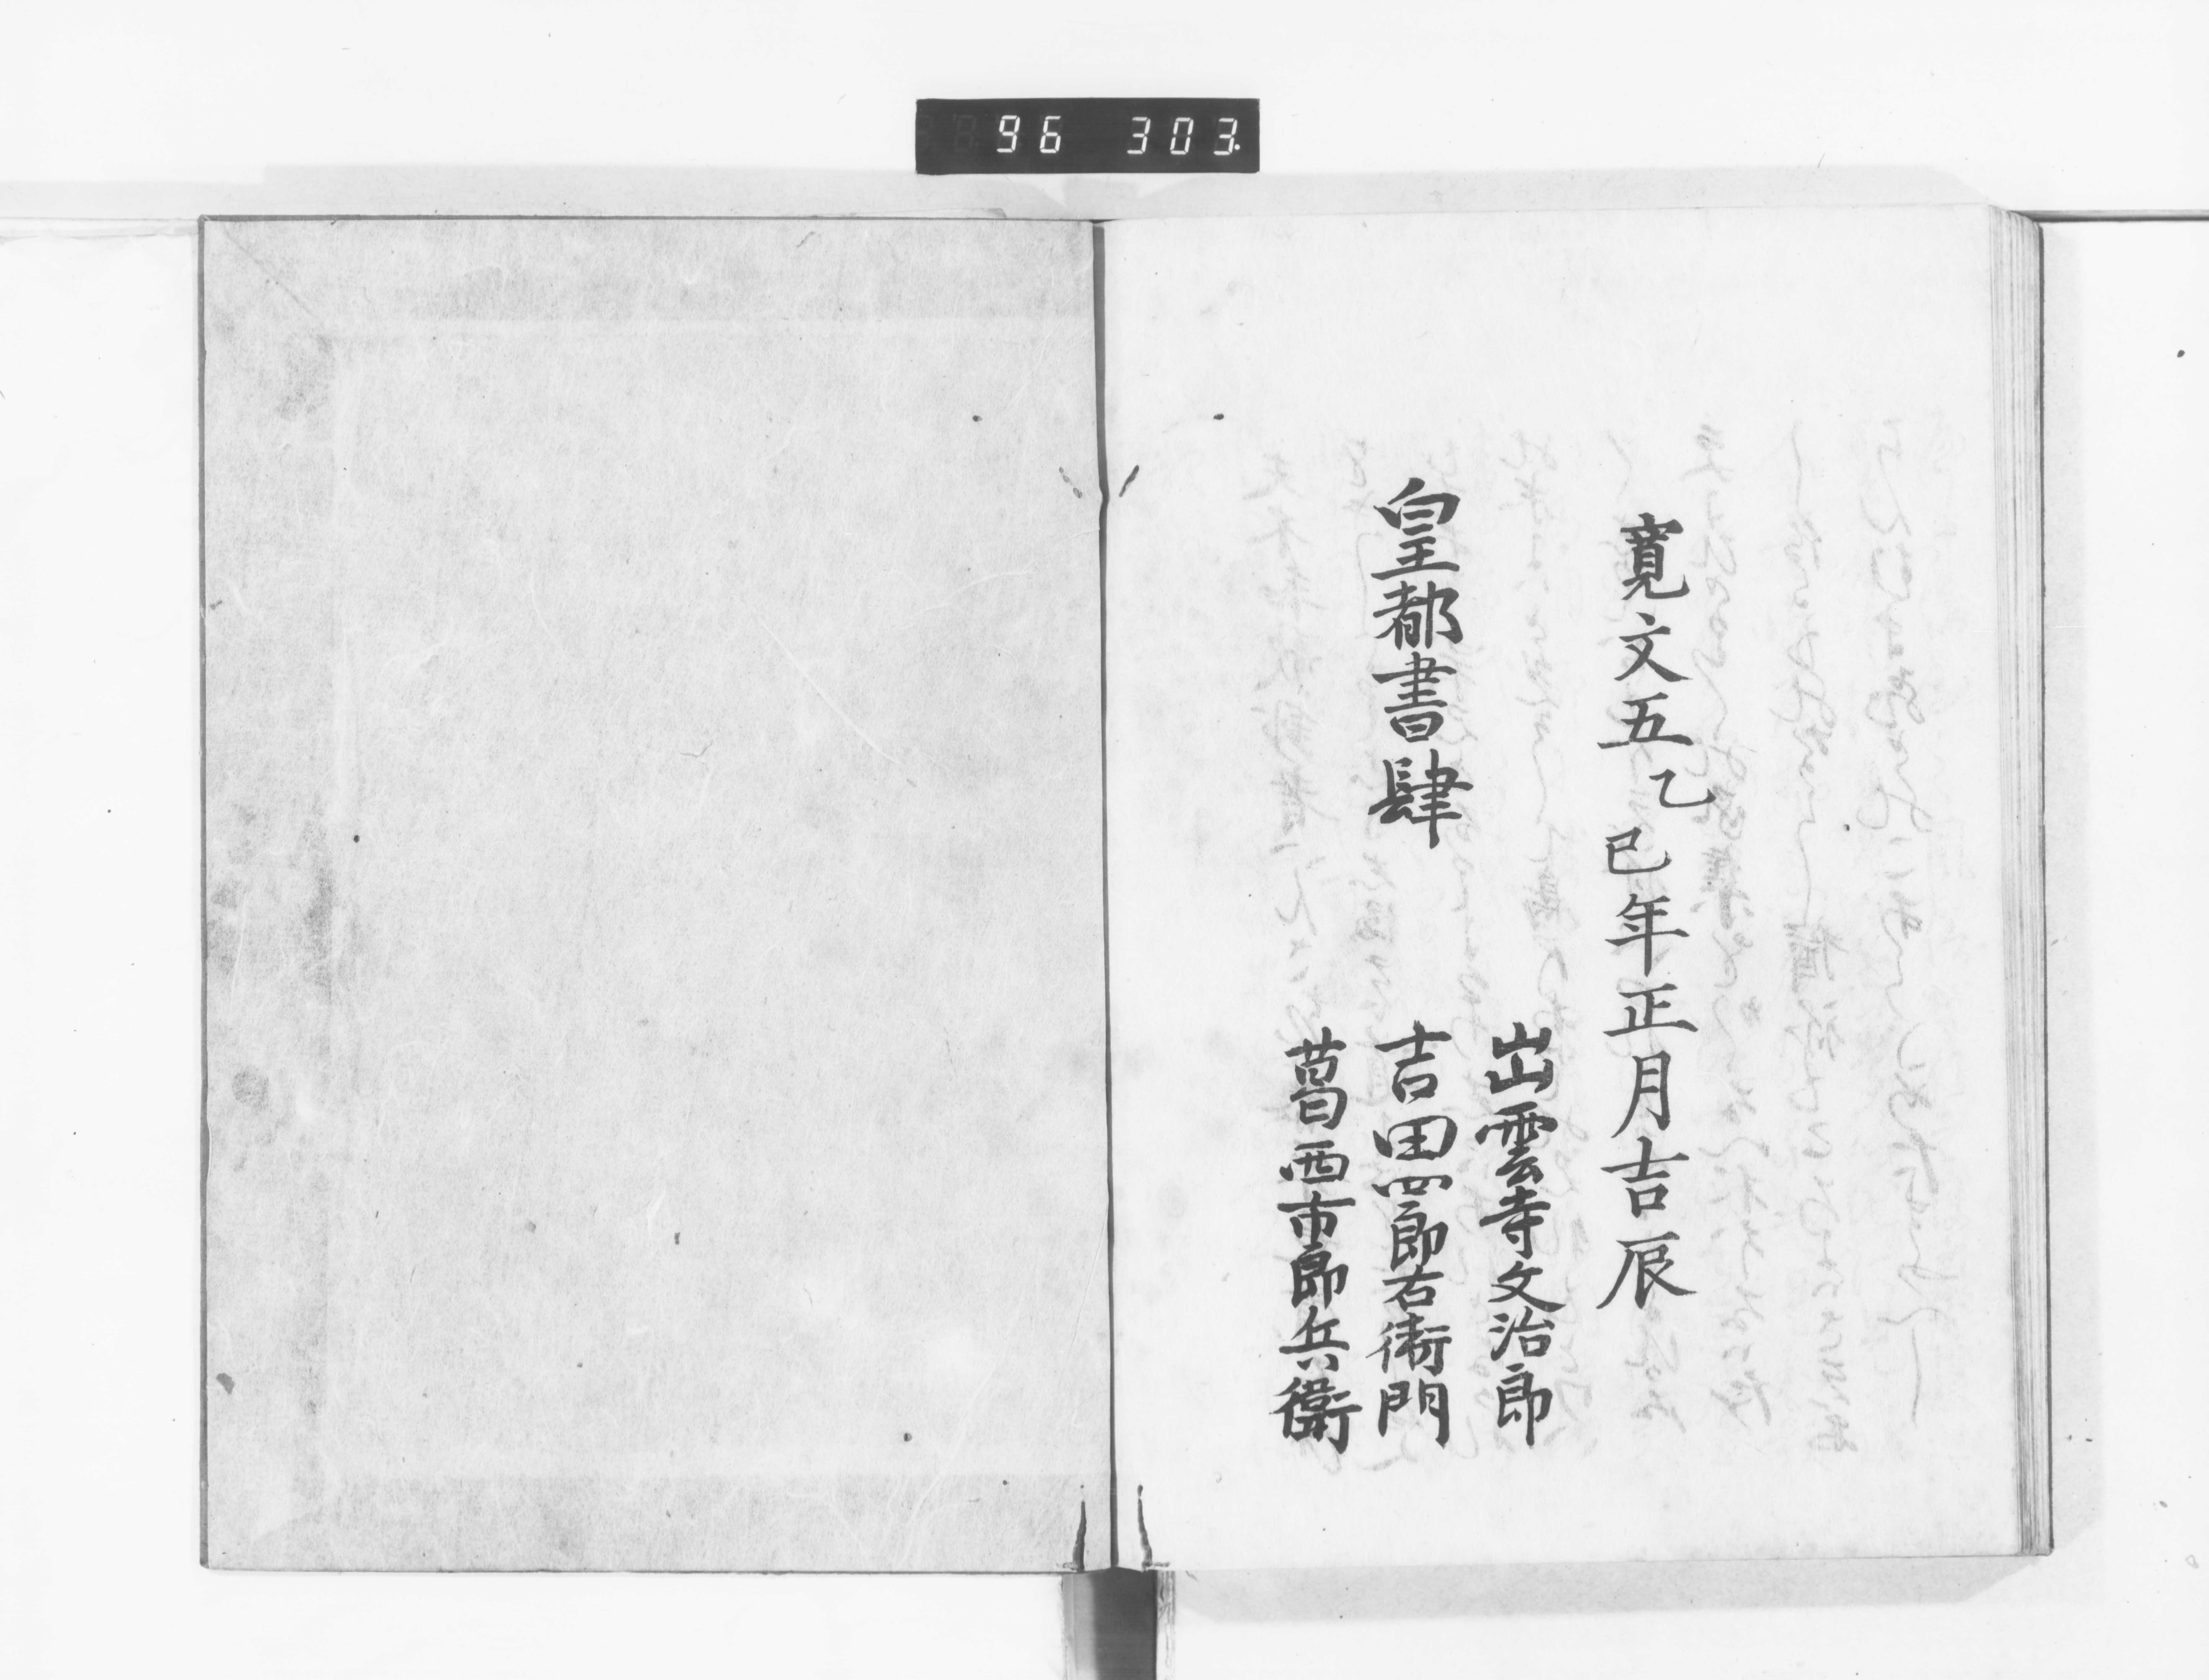 96 303.
寛文五乙巳年正月吉辰
皇都書肆
出雲寺文治郎
吉田四郎右衛門
葛西市郎兵衛